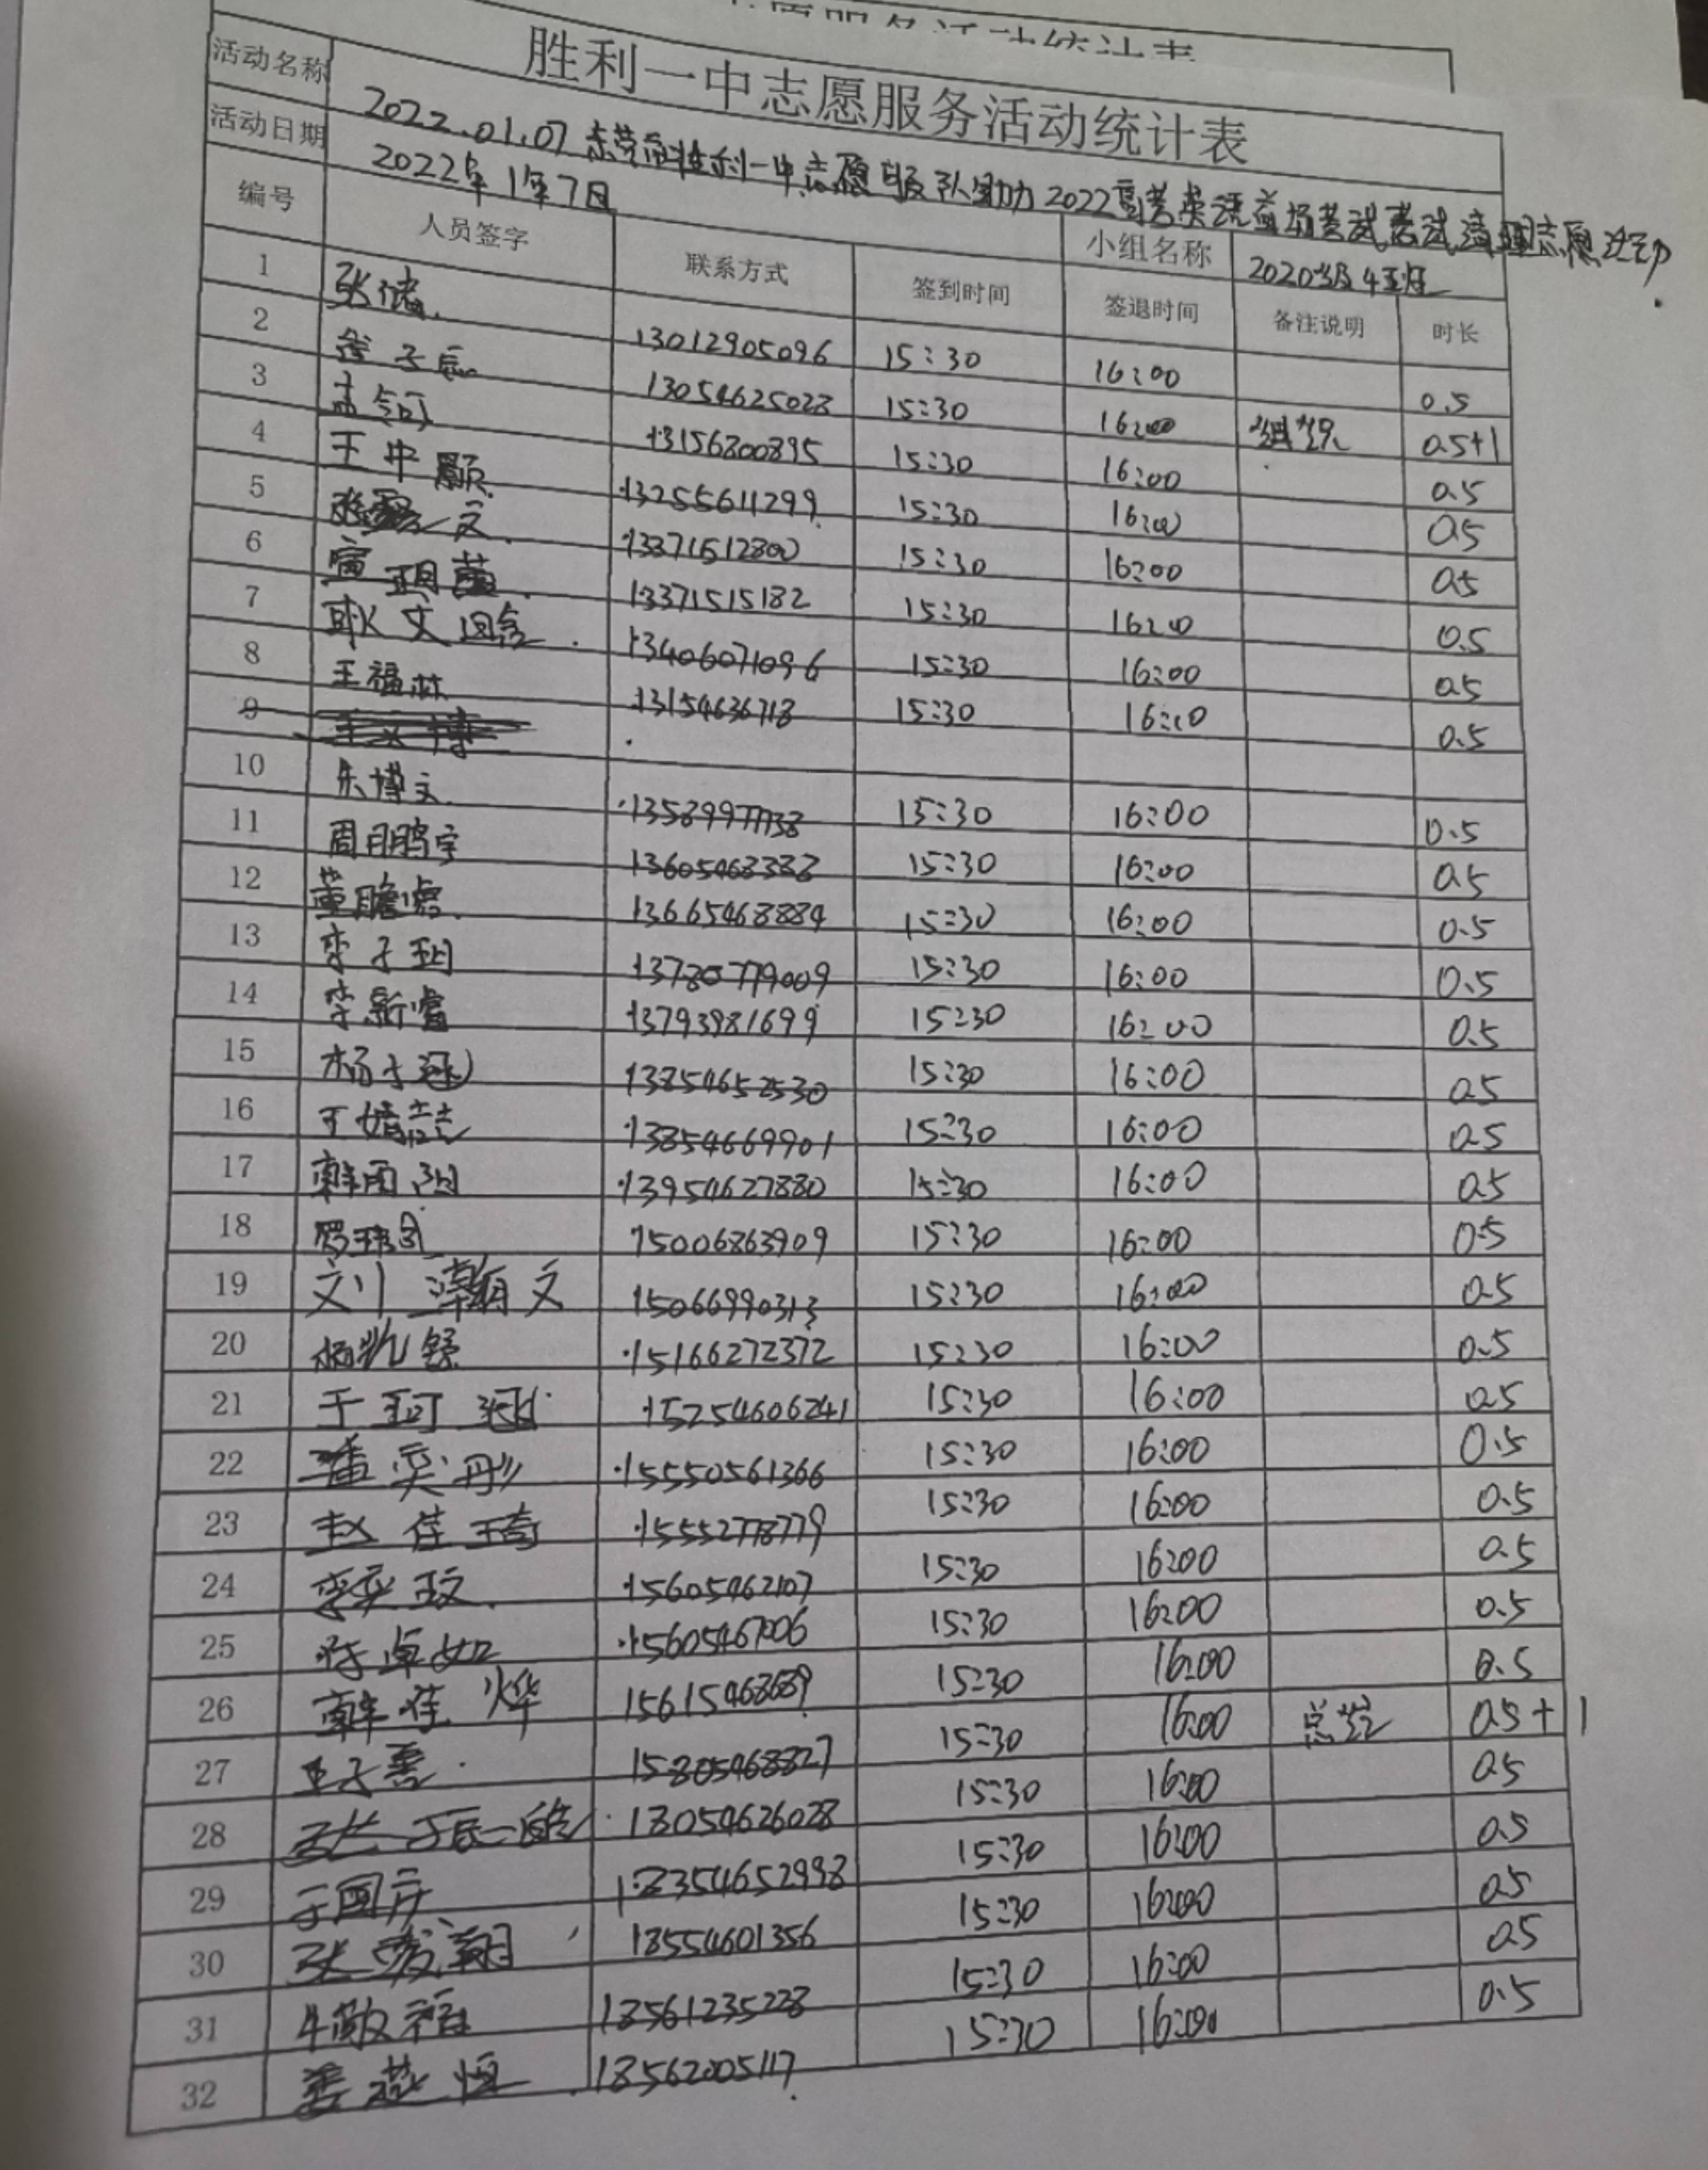 胜利一中志愿服务活动统计表
活动名称 2022.01.07 胜利一中志愿服队助力2022高考英语 考试考试清理志愿活动
活动日期 2022年1年7日 小组名称 2020级4班
编号 人员签字 联系方式 签到时间 签退时间 备注说明 时长
1 13012905096 15:30 16:00 0.5
2 13054625028 15:30 16:00 组织 0.5+1
3 孟 13156800895 15:30 16:00 0.5
4 王中顥 13255611299 15:30 16:00 0.5
5 13371512800 15:30 16:00 0.5
6 13371515182 15:30 16:00 0.5
7 耿文 13406071096 15:30 16:00 0.5
8 王福林 13154636718 15:30 16:00 0.5
9
10 朱博文 15:30 16:00 0.5
11 周鹏宇 13605468388 15:30 16:00 0.5
12 董瞻 13665468884 15:30 16:00 0.5
13 李子玥 13780779009 15:30 16:00 0.5
14 李新睿 13793981699 15:30 16:00 0.5
15 杨子涵 13854652530 15:30 16:00 0.5
16 王婧喆 13854669901 15:30 16:00 0.5
17 韩雨 13954627880 15:30 16:00 0.5
18 罗 15006863909 15:30 16:00 0.5
19 刘 文 15066990313 15:30 16:00 0.5
20 杨凯舒 15166272372 15:30 16:00 0.5
21 于珂 15254606241 15:30 16:00 0.5
22 潘奕彤 15550561366 15:30 16:00 0.5
23 赵佳琦 15552778779 15:30 16:00 0.5
24 李奕玟 15605462107 15:30 16:00 0.5
25 陈卓如 15605467006 15:30 16:00 0.5
26 韩佳烨 15615468689 15:30 16:00 0.5
27 子善 15805468827 15:30 16:00 总结 0.5+1
28 18054626028 15:30 16:00 0.5
29 于国庆 18354652998 15:30 16:00 0.5
30 张 翔 18554601356 15:30 16:00 0.5
31 牛敬 18561235228 15:30 16:00 0.5
32 姜 恒 18562005117 15:30 16:00 0.5